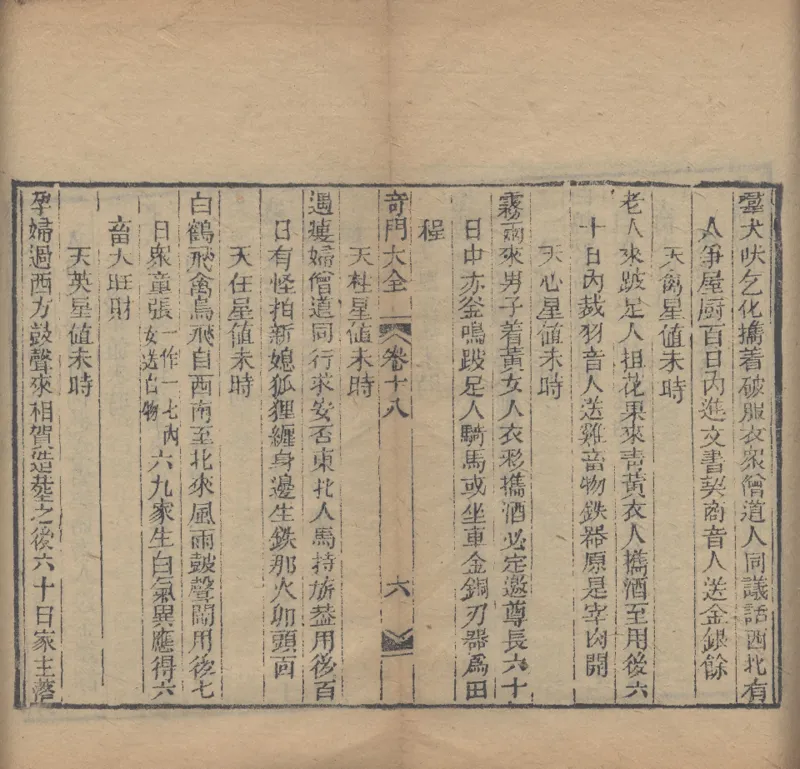 犬吠乞化擕着破服衣眾僧道人同議話西北有
人爭屋厨百日內進文書契商音人送金銀餘
天禽星值未時
老人來跛足人担花果來靑黃衣人擕酒至用後六
十日內裁羽音人送雞音物鉄器原是宰肉開
天心星值未時
霧雨來男子着黃女人衣彩擕酒必定邀尊長六十
日中亦釜鳴跛足人騎馬或坐車金銅刃器為田
程
奇門大全
卷十八
六
天柱星值未時
遇孕婦僧道同行求安否東北人馬持旂盔用後百
日有怪拍新媳狐狸纏身邊生鉄那火卯頭面
天任星值未時
白鶴飛禽鳥飛自西南至北來風雨皷聲鬧用後七
日眾童張一作一七內女送白物六九家生白氣異應得六
畜大旺財
天英星值未時
孕婦過西方鼓聲來相賀造塟之後六十日家主